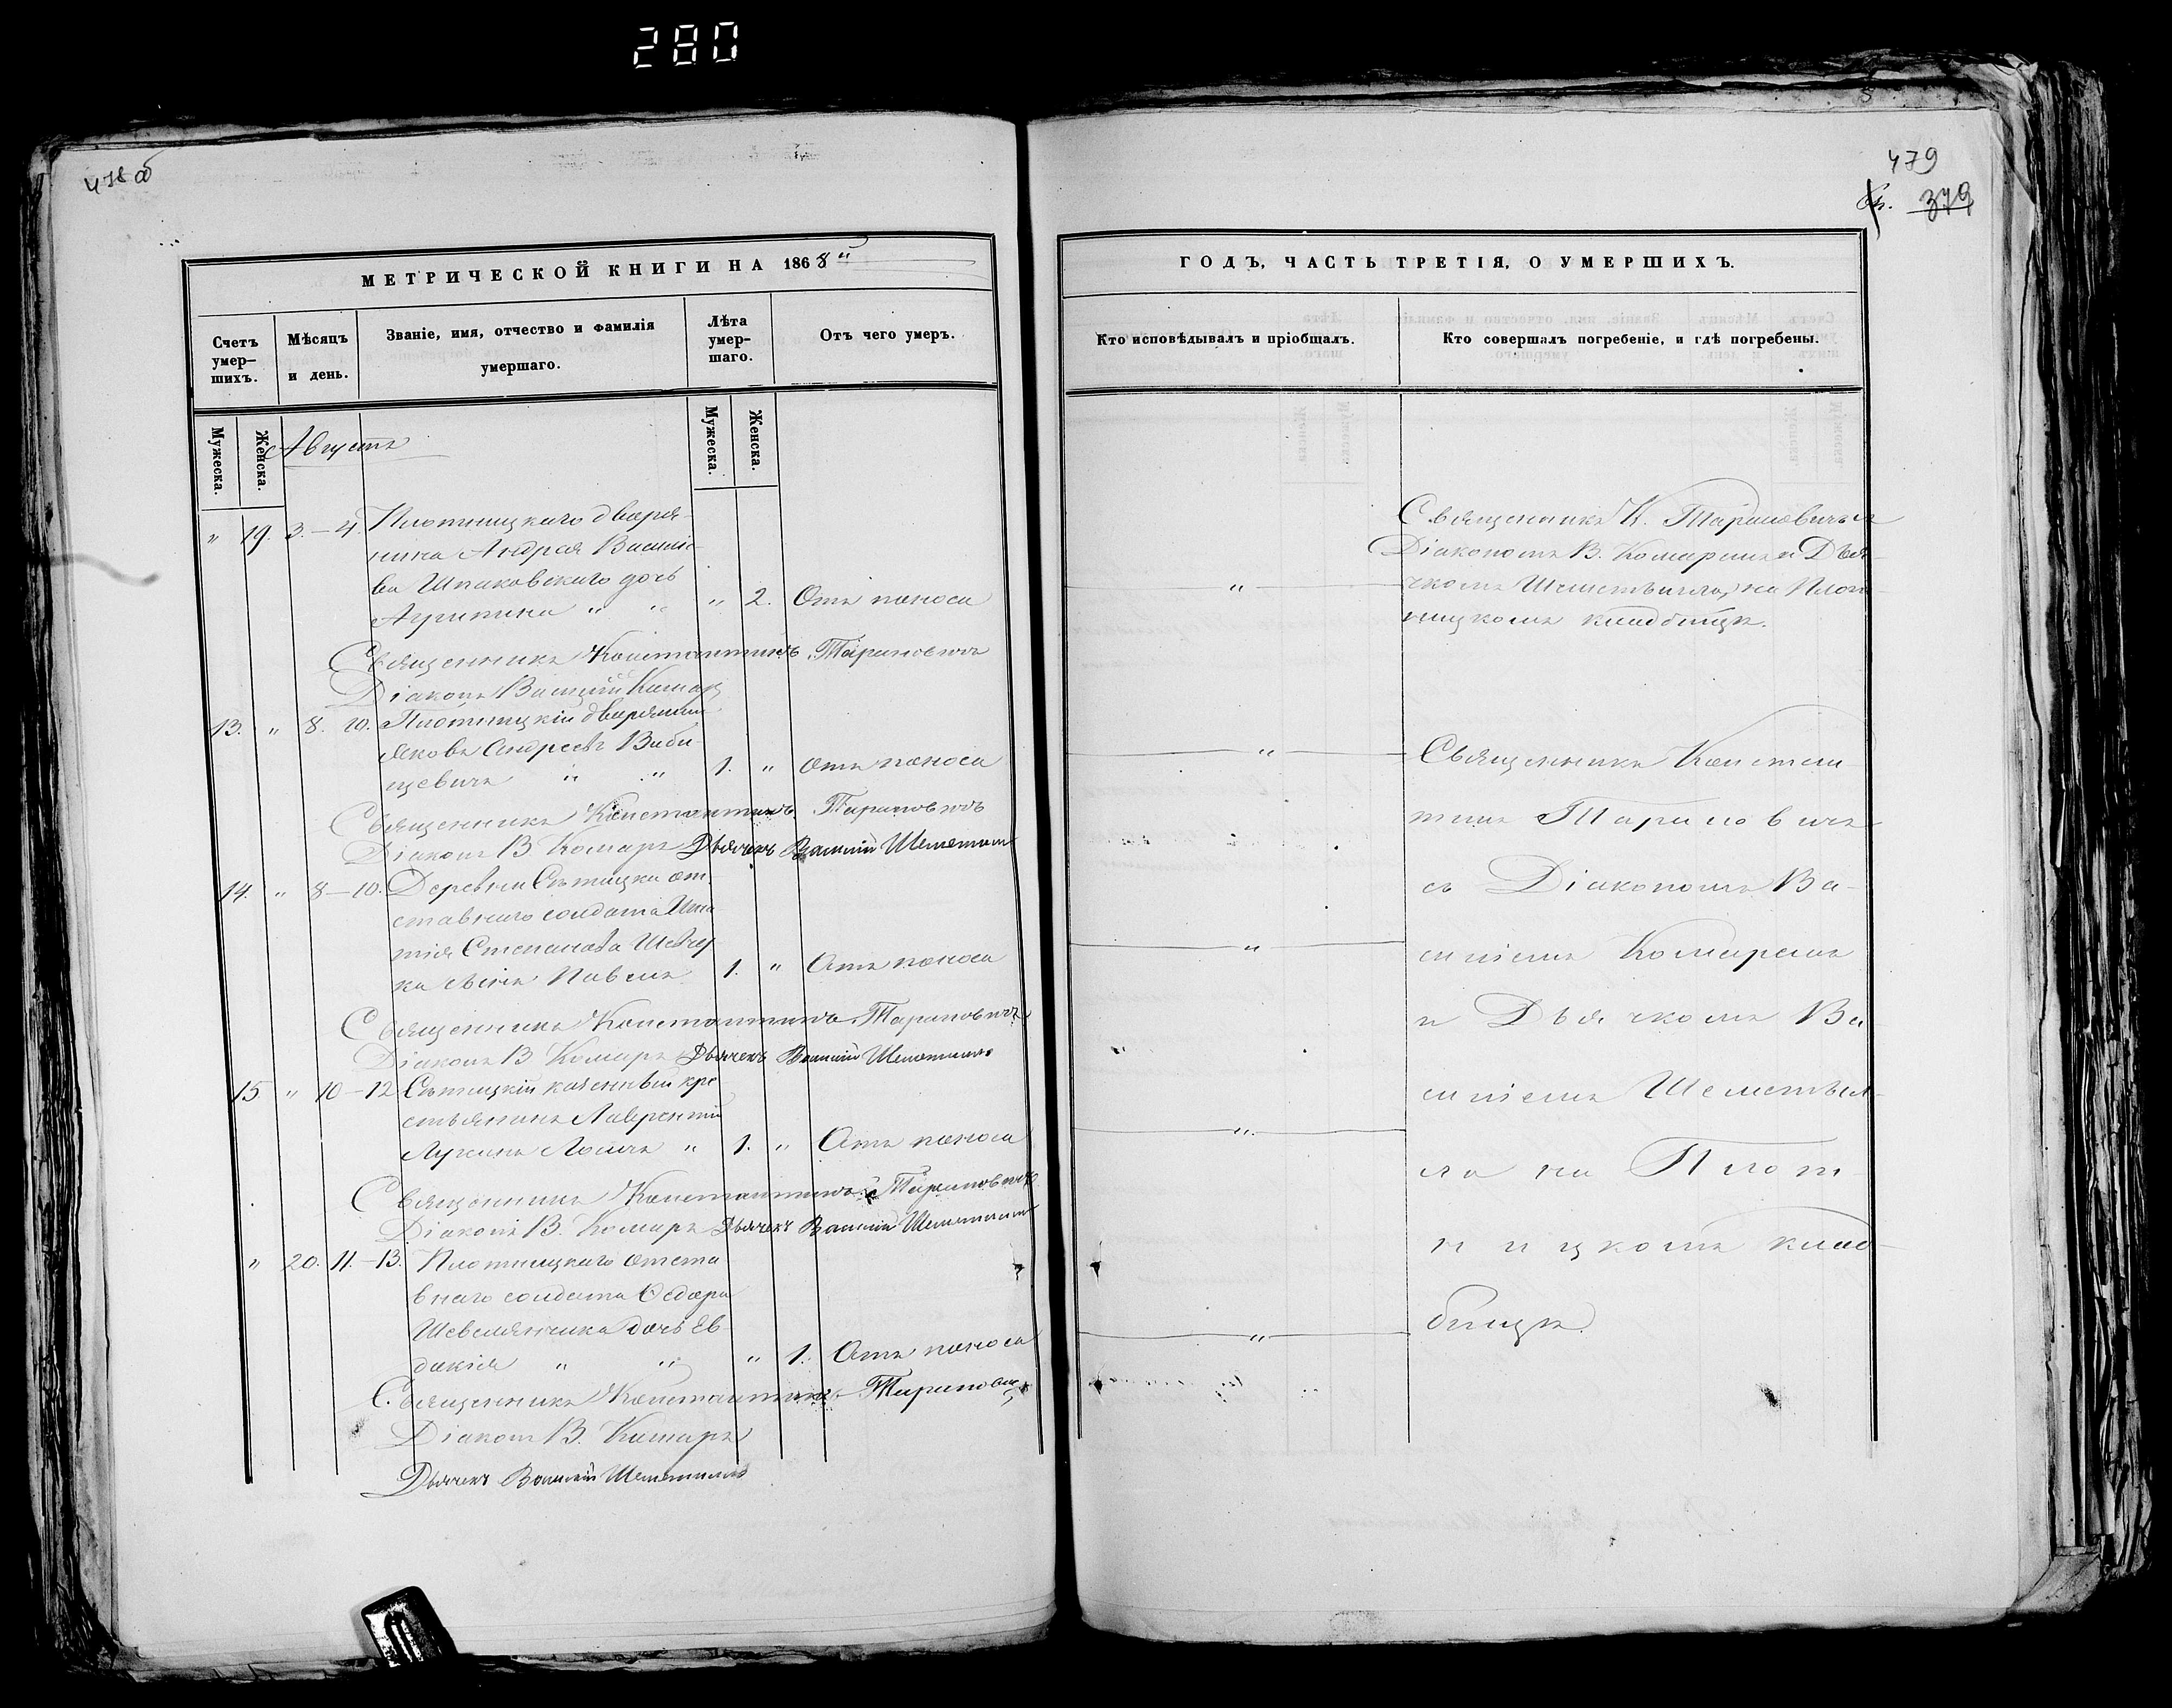 280
478 об
479
379
МЕТРИЧЕСКОЙ КНИГИ НА 1868й
Счетъ умер-
шихъ.
Мѣсяцъ
и день.
Званіе, имя, отчество и фамилія
умершаго.
Лѣта
умер-
шаго.
Отъ чего умеръ.
Мужеска.
Женска.
Мужеска.
Женска.
Августъ
" 19. 3.–4. Плотницкаго дворя-
нина Андрея Василіе-
ва Шпаковскаго дочь
Агрипина " " " 2. Отъ поноса
Священникъ Константинъ Тариновичъ
Діаконъ Василій Комаръ
13. " 8. 10. Плотницкій дворянинъ
Яковъ Андреевъ Виби-
цевичъ " " 1. " Отъ поноса
Священникъ Константинъ Тариновичъ
Діаконъ В Комаръ Дьячекъ Василій Шеметилло
14. " 8–10. Деревни Сѣтицка от
ставнаго солдата Игна
тія Степанова Шевчу
ка сынъ Павелъ 1. " Отъ поноса
Священникъ Константинъ Тариновичъ
Діаконъ В Комаръ Дьячекъ Василій Шеметилло
15 " 10–12 Сѣтицкій казенный кре
стьянинъ Лаврентій
Лукинъ " 1. " Отъ поноса
Священникъ Константинъ Тариновичъ
Діаконъ В. Комаръ Дьячекъ Василій Шеметилло
" 20. 11.–13. Плотницкаго отста
внаго солдата Ѳедора
дочь Ев-
докія " " " 1. Отъ поноса
Священникъ Константинъ Тариновичъ
Діаконъ В. Комаръ
Дьячекъ Василій Шеметилло
ГОДЪ, ЧАСТЬ ТРЕТІЯ, О УМЕРШИХЪ.
Кто исповѣдывалъ и пріобщалъ.
Кто совершалъ погребеніе, и гдѣ погребены.
Священникъ К. Тариновичъ съ
Діакономъ В. Комаромъ и Дья-
" чкомъ Шеметилломъ, на Плот-
ницкомъ кладбищѣ.
" Священникъ Констан
тинъ Тариновичъ
съ Діакономъ Ва-
" силіемъ Комаромъ
и Дьячкомъ Ва
силіемъ Шеметил-
"
ло на Плот
ницкомъ клад-
" бищѣ.